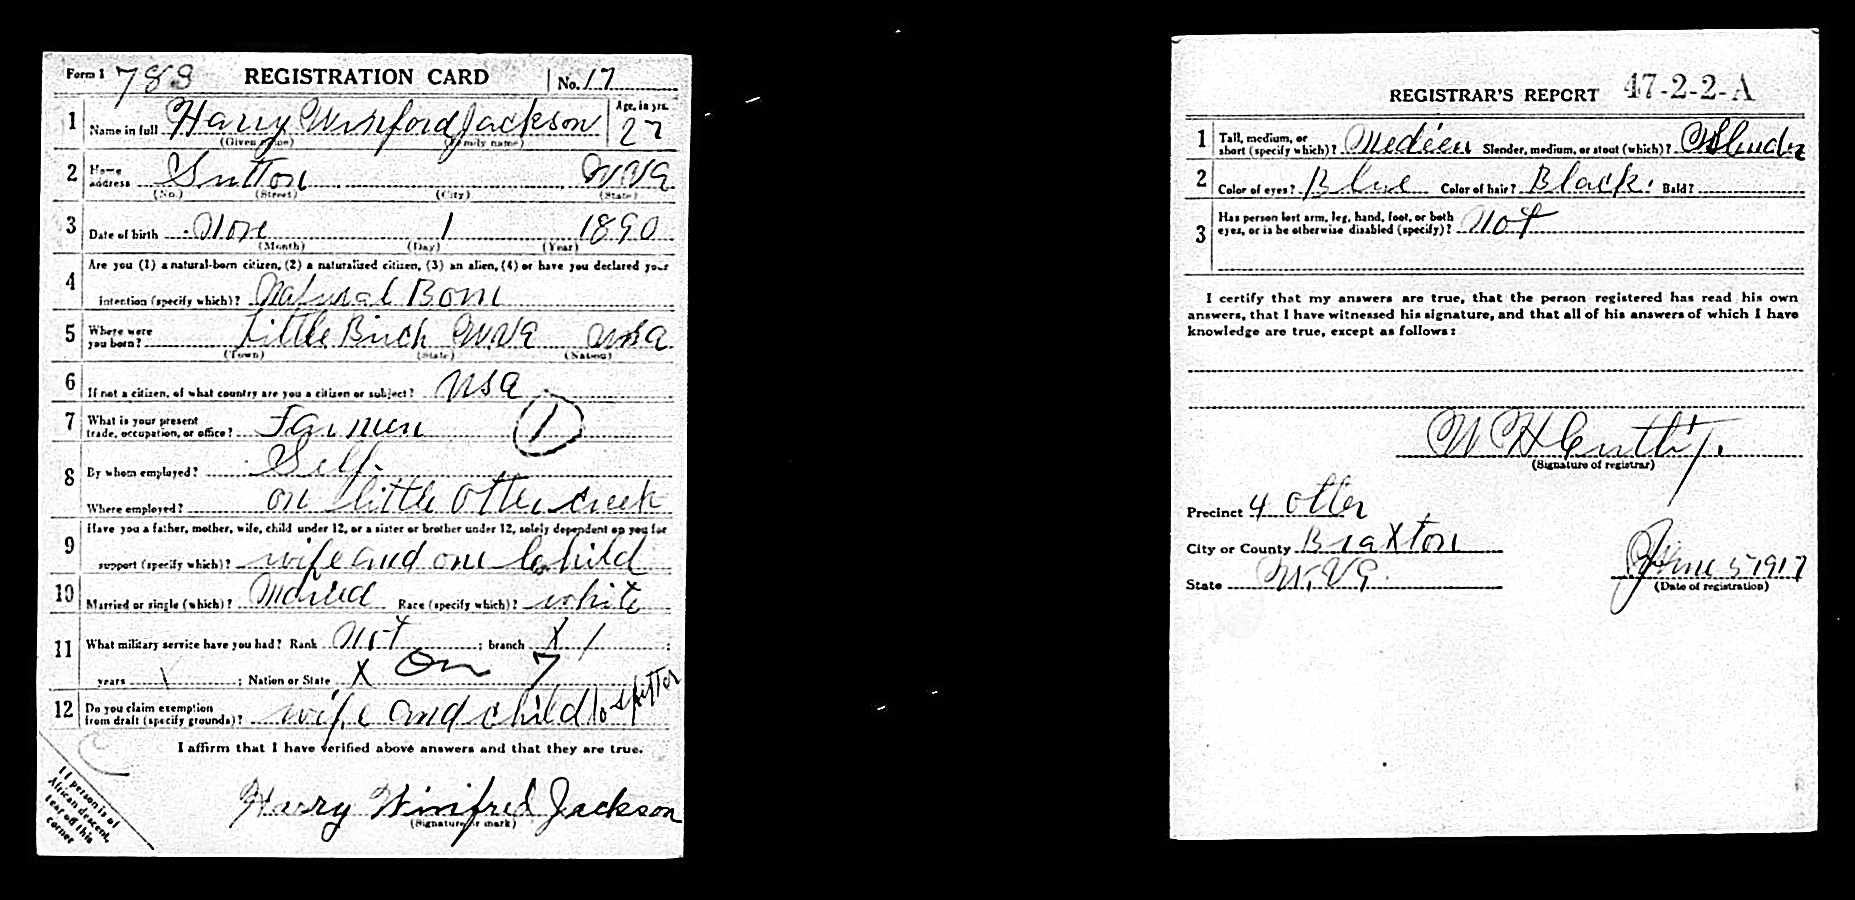 Form 1 783 REGISTRATION CARD No. 17
1 Name in full Harry Winford Jackson Age, in yrs. 27
(Given name) (Family name)
2 Home address Sutton W Va
(No.) (Street) (City) (State)
3 Date of birth Nov 1 1890
(Month) (Day) (Year)
Are you (1) a natural-born citizen, (2) a naturalized citizen, (3) an alien, (4) or have you declared your
4 intention (specify which)? Natural Born
5 Where were you born? Little Birch W.Va USA
(Town) (State) (Nation)
6 If not a citizen, of what country are you a citizen or subject? USA
7 What is your present trade, occupation, or office? Farmer 1
8 By whom employed? Self
Where employed? on little Otter creek
Have you a father, mother, wife, child under 12, or a sister or brother under 12, solely dependent on you for
9 support (specify which)? wife and one child
10 Married or single (which)? Maried Race (specify which)? white
11 What military service have you had? Rank Not ; branch X ;
years ; Nation or State X
12 Do you claim exemption from draft (specify grounds)? wife and child to
I affirm that I have verified above answers and that they are true.
Harry Winifred Jackson
(Signature or mark)
If person is of
African descent,
tear off this
corner
REGISTRAR'S REPORT 47-2-2-A
1 Tall, medium, or short (specify which)? Slender, medium, or stout (which)? Slender
2 Color of eyes? Blue Color of hair? Black. Bald?
3 Has person lost arm, leg, hand, foot, or both eyes, or is he otherwise disabled (specify)? Not
I certify that my answers are true, that the person registered has read his own
answers, that I have witnessed his signature, and that all of his answers of which I have
knowledge are true, except as follows:
W H
(Signature of registrar)
Precinct 4 Otter
City or County Braxton
State W.Va.
June 5 1917
(Date of registration)